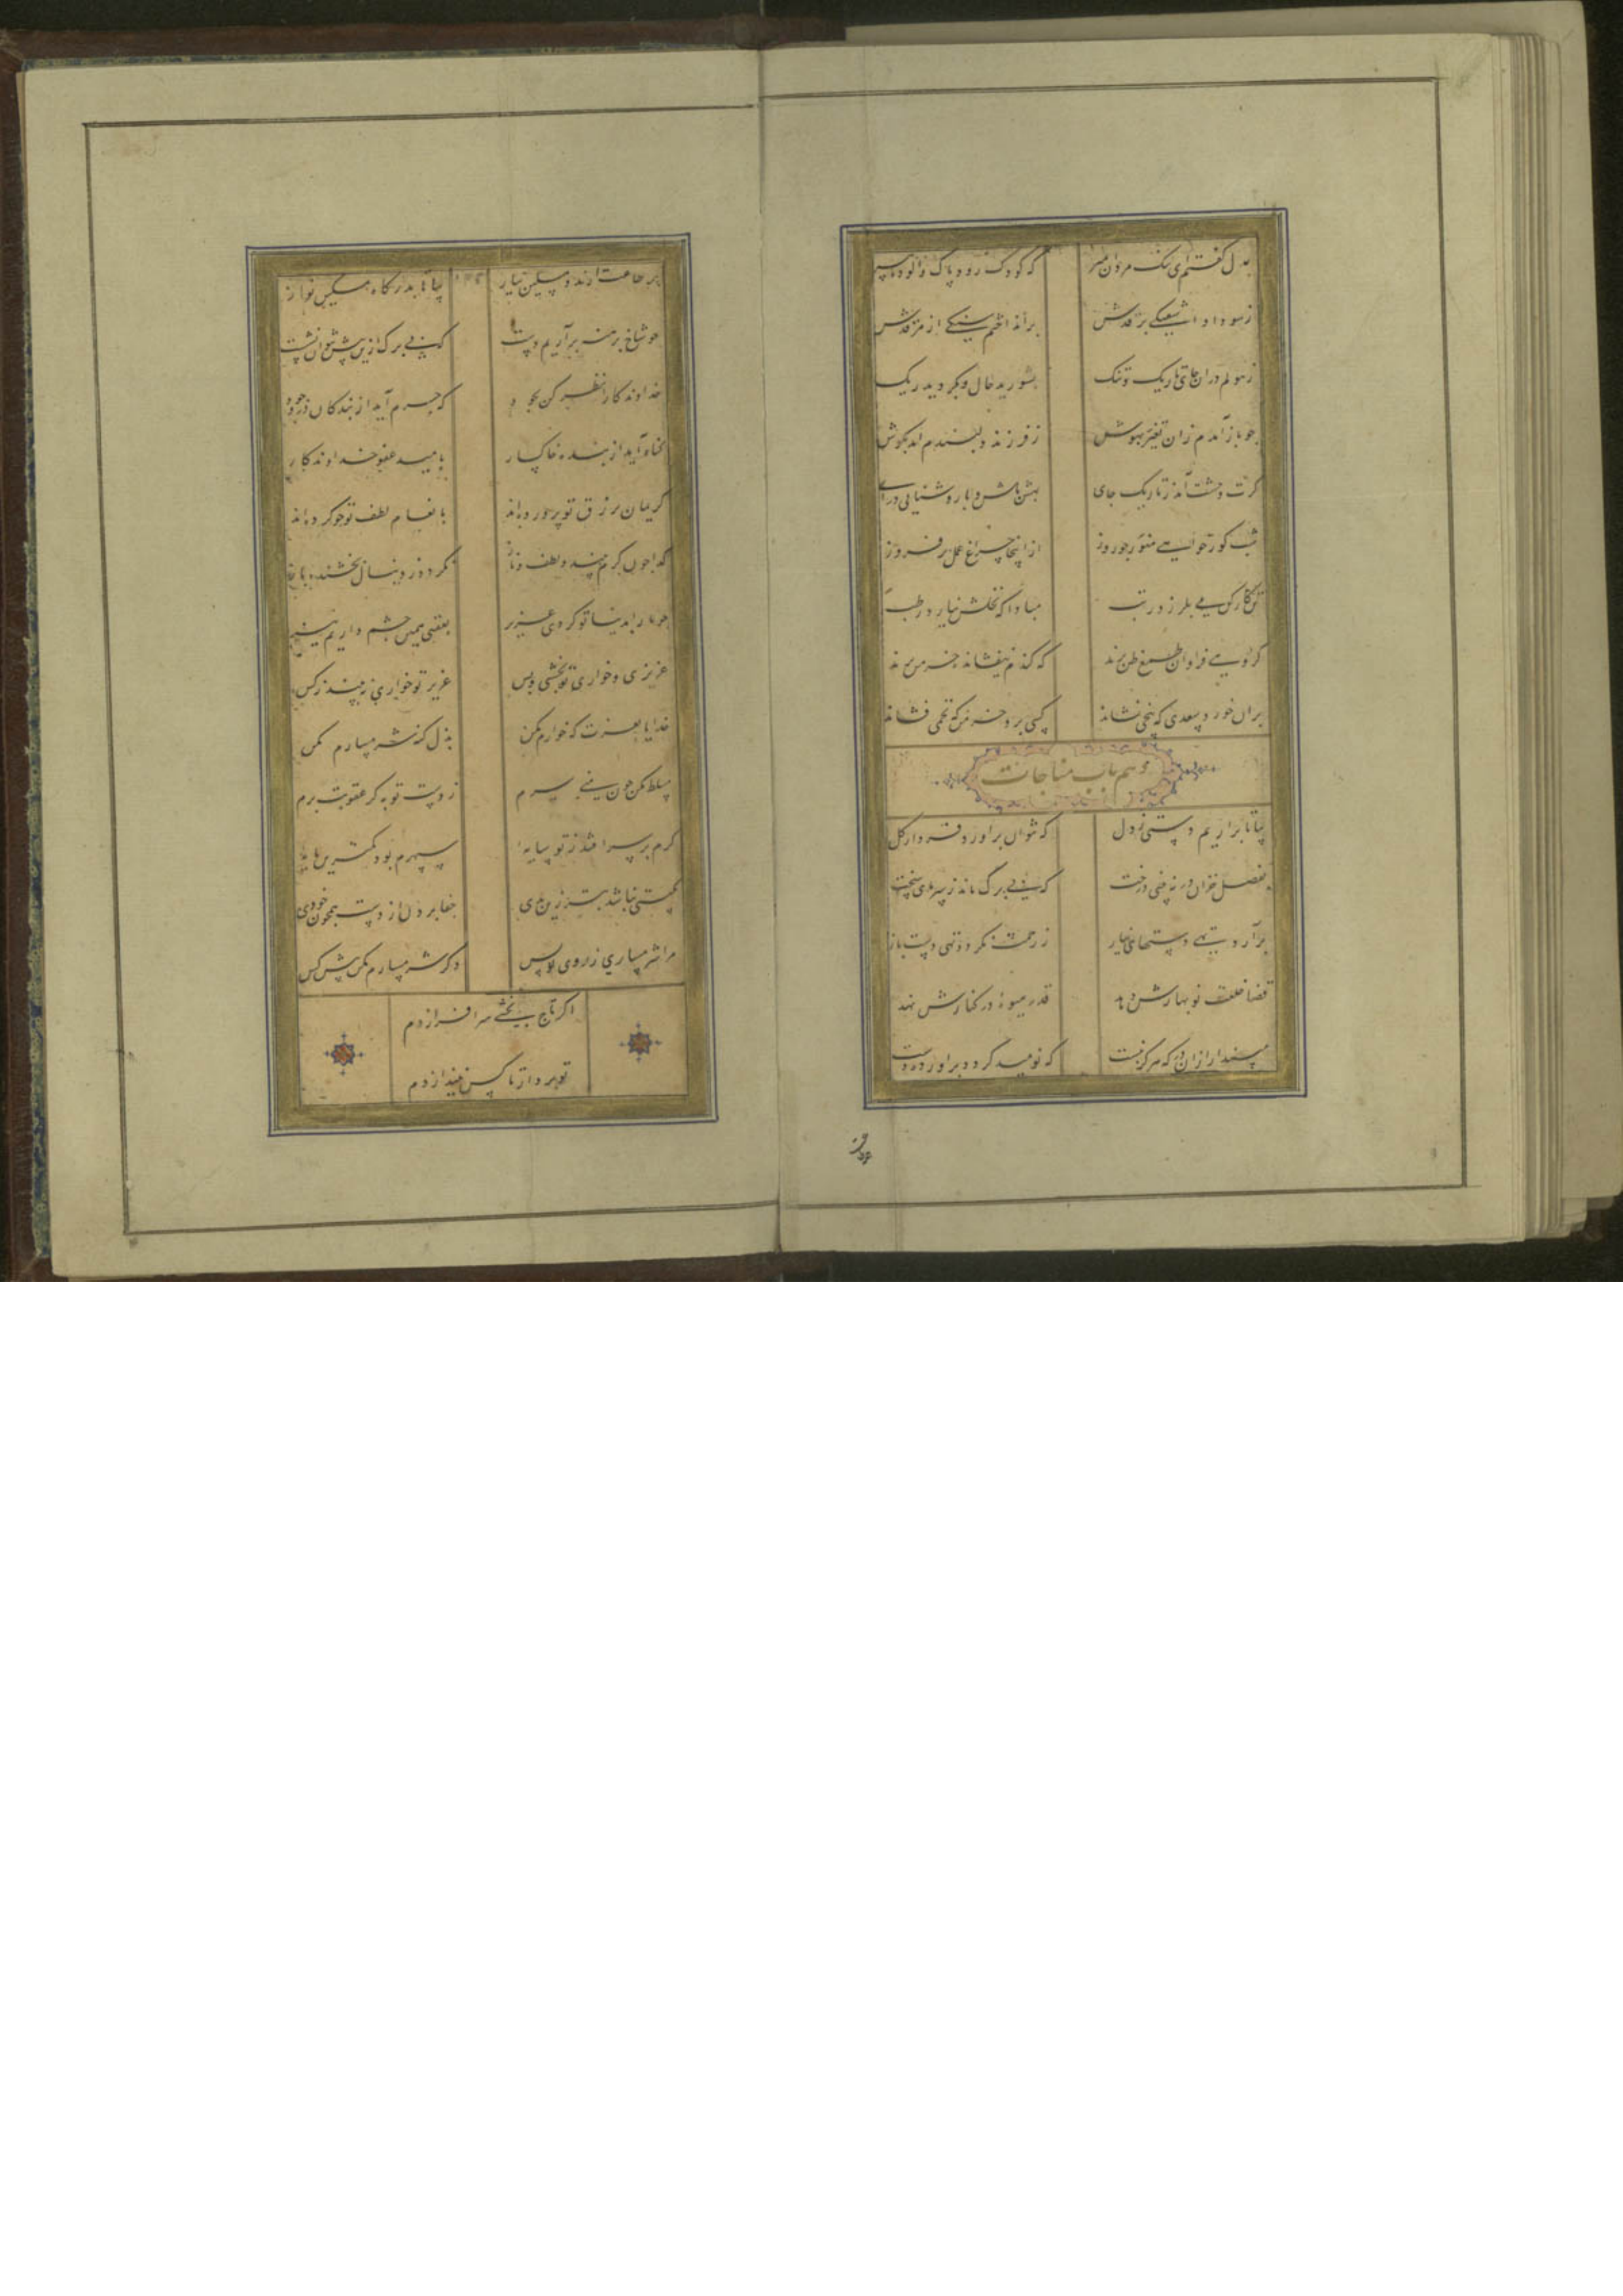 بدل گفتم ای ننگ مردان بمیر که کودک رود پاک و آلوده پیر
ز سودا و آشفتگی بر قدش برانداختم سنگی از مرقدش
ز هولم دران جای تاریک و تنک بشورید حال و بگردید رنگ
چو باز آمدم زان تغیر بهوش ز فرزند دلبندم آمد بگوش
گرت وحشت آمد ز تاریک جای بهش باش و با روشنایی درآی
شب کور خواهی منور چو روز ازاینجا چراغ عمل برفروز
تن کارکن می بلرزد ز تب مبادا که نخلش نیارد رطب
گروهی فراوان طمع ظن برند که گندم نیفشانده خرمن برند
بران خورد سعدی که بیخی نشاند کسی برد خرمن که تخمی فشاند
دهم باب مناجات
بیا تا براریم دستی ز دل که نتوان براورد فردا ز گل
بفصل خزان در نه بینی درخت که بی برگ ماند ز سرمای سخت
برآرد تهی دستهای نیاز ز رحمت نگردد تهی دست باز
قضا خلعت نوبهارش دهد قدر میوه در کنارش نهد
مپندار ازان در که هرگز نبست که نومید گردد براورده دست
همه طاعت آرند و مسکین نیاز بیا تا بدرگاه مسکین نواز
چو شاخ برهنه برآریم دست که بی برگ ازین بیش نتوان نشست
خداوندگارا نظر کن بجود که جرم آید از بندگان در وجود
گناه آید از بنده خاکسار بامید عفو خداوندگار
کریما برزق تو پرورده‌ایم بانعام و لطف تو خو کرده‌ایم
گدا چون کرم بیند و لطف و ناز نگردد ز دنبال بخشنده باز
چو ما را بدنیا تو کردی عزیز بعقبی همین چشم داریم نیز
عزیزی و خواری تو بخشی و بس عزیز تو خواری نبیند ز کس
خدایا بعزت که خوارم مکن بذل گنه شرمسارم مکن
مسلط مکن چون منی بر سرم ز دست تو به گر عقوبت برم
گرم بر سر افتد ز تو سایه سپهرم بود کمترین پایه
بگیتی نباشد بتر زین بدی جفا بردن از دست همچون خودی
مرا شرمساری ز روی تو بس دگر شرمسارم مکن پیش کس
اگر تاج بخشی سر افرازدم
تو بردار تا کس نیندازدم